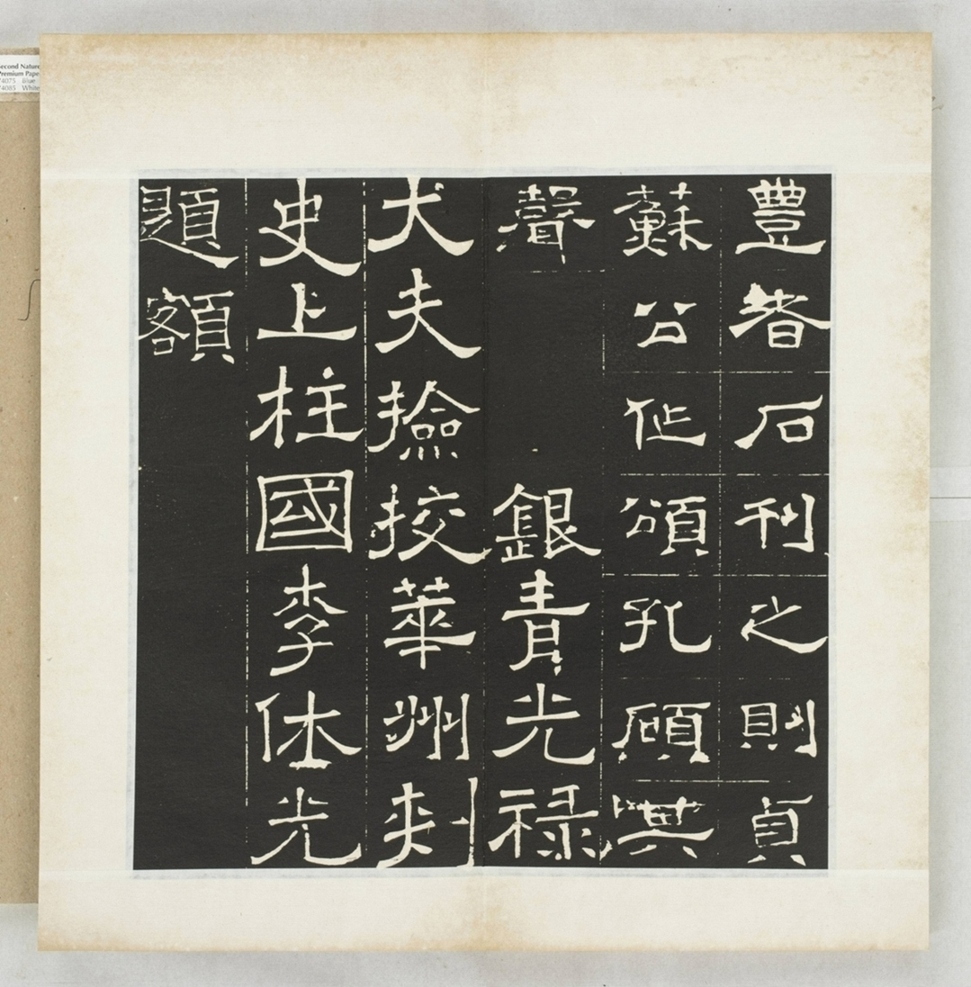 豐者石刊之則貞
蘇公作頌孔碩其
聲 銀青光祿
大夫撿挍華州刺
史上柱國李休光
題額
econd Nature
Premium Pape